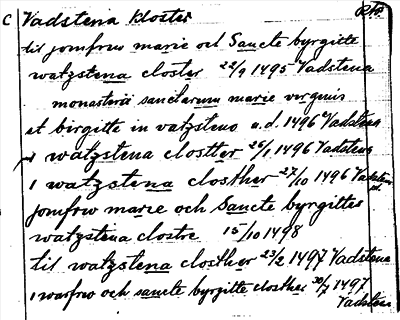 C Vadstena kloster
til jomfrw marie och Sancte byrgitte
watzstena closter 22/9 1495 Vadstena
monastirii sanctarum marie virginis
et birgitte in vatzsteno a.d. 1496 Vadstena
i watzstena clostter 26/1 1496 Vadstena
i watzstena closther 27/10 1496 Vadstena
jomfrw marie och Sancte byrgittes
watzstena clostre 15/10 1498
til watzstena closther 23/2 1497 Vadstena
i warfrw och sancte byrgitte closther 30/7 1497
Vadstena